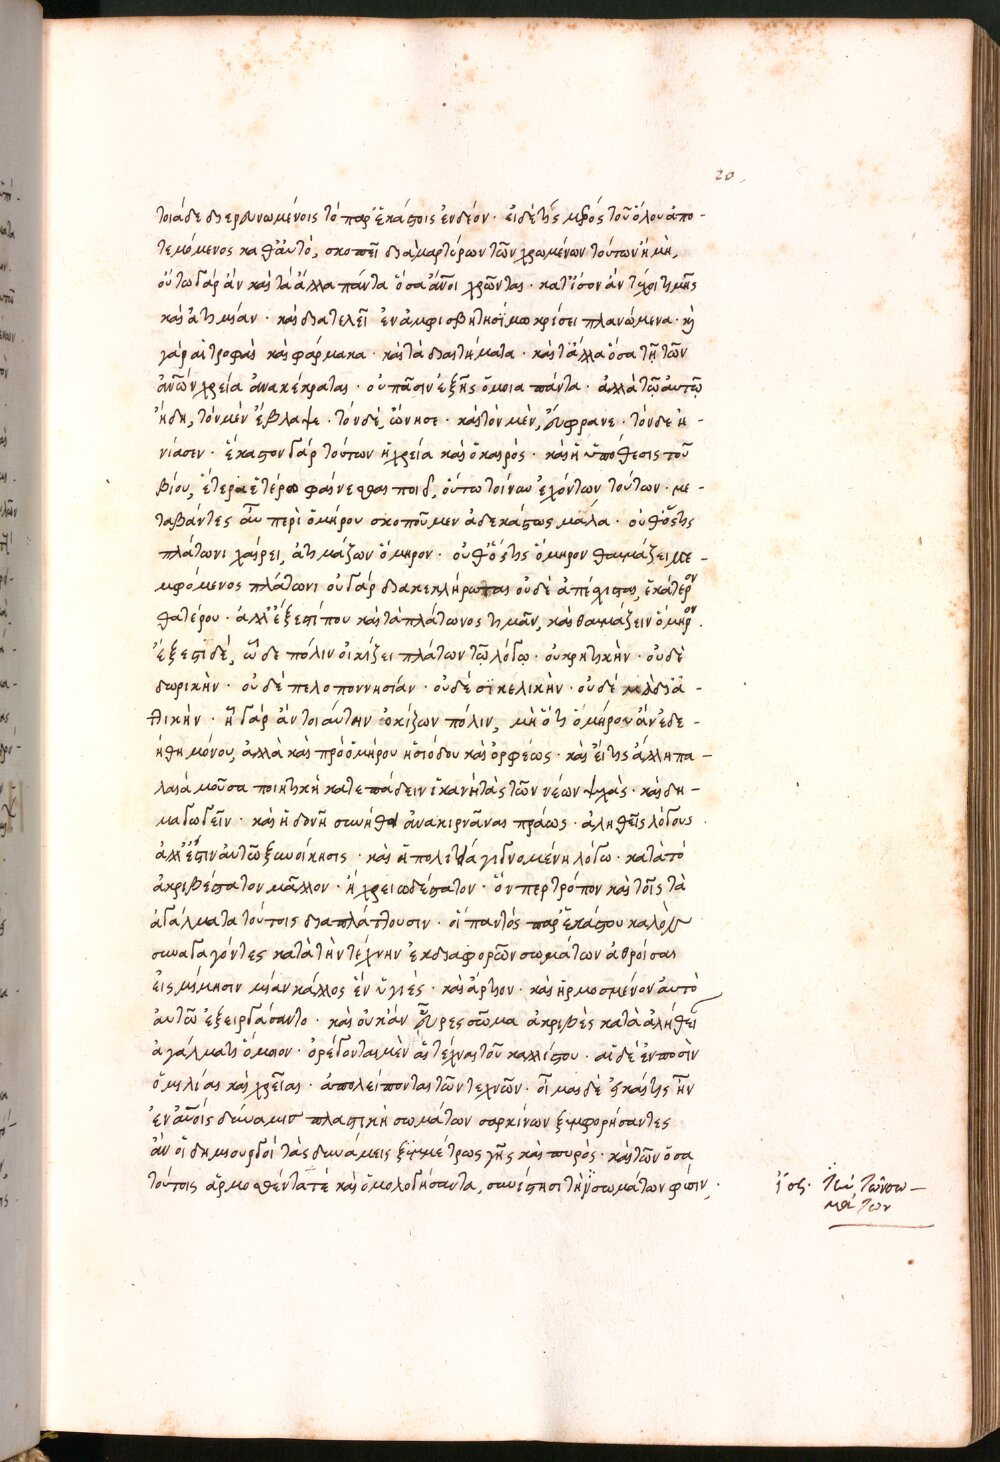 20
τοιάδε διερευνωμένοις τὸ παρ' ἑκάστοις ἐνδέον · εἰ δέ τις μέρος τοῦ ὅλου ἀπο-
τεμόμενος καθ' αὑτὸ, σκοπεῖ διὰ μαρτύρων τῶν χρωμένων τούτων ἢ μὴ,
οὕτω γὰρ ἂν καὶ τὰ ἄλλα πάντα ὅσα ἄνοι χρῶνται · κατ' ἴσον ἂν τύχοι τιμῆς
καὶ ἀτιμίαν · καὶ διατελεῖ ἐν ἀμφισβητησίμῳ κρίσει πλανώμενα · καὶ
γὰρ αἱ τροφαὶ καὶ φάρμακα · καὶ τὰ διαιτήματα · καὶ τἄλλα ὅσα τῇ τῶν
ἀνων χρεία ἀνακέκραται · οὐ πᾶσιν ἑξῆς ὅμοια πάντα · ἀλλὰ τῷ αὐτῷ
ἤδη, τὸν μὲν ἔβλαψε · τὸν δὲ, ὤνησε · καὶ τὸν μὲν, εὔφρανε · τὸν δὲ ἠ-
νίασεν · ἕκαστον γὰρ τούτων ἡ χρεία καὶ ὁ καιρός · καὶ ἡ ὑπόθεσις τοῦ
βίου, ἕτερα ἑτέρῳ φαίνεσθαι ποιεῖ, οὕτω τοίνυν ἐχόντων τούτων · με-
ταβάντες αὖ περὶ ὁμήρου σκοποῦμεν ἀδεκάστως μάλα · οὐθ' ὅστις
πλάτωνι χαίρει, ἀτιμάζων ὅμηρον · οὐθ' ὅστις ὅμηρον θαυμάζει με-
μφόμενος πλάτωνι οὐ γὰρ διακεκλήρωται οὐδὲ ἀπέσχισται, ἑκάτερον
θατέρου · ἀλλ' ἔξεστί που καὶ τὰ πλάτωνος τιμᾶν, καὶ θαυμάζειν ὅμηρον ·
ἔξεστι δέ, ὧδε πόλιν οἰκίζει πλάτων τῷ λόγῳ · οὐ κρητικὴν · οὐδὲ
δωρικὴν · οὐδὲ πελοποννησίαν · οὐδὲ σικελικὴν · οὐδὲ μὰ δία -
θικήν · ἦ γὰρ ἂν τοιαύτην οἰκίζων πόλιν, μὴ ὅτι ὁμήρου ἂν ἐδε-
ήθη μόνου, ἀλλὰ καὶ πρὸ ὁμήρου ἡσιόδου καὶ ὀρφέως · καὶ εἴ τις ἄλλη πα-
λαιὰ μοῦσα ποιητικὴ κατεπάδειν ἱκανὴ τὰς τῶν νέων ψυχὰς · καὶ δη-
μαγωγεῖν · καὶ ἡδονῇ συνήθει ἀνακιρνᾶναι πράως · ἀληθεῖς λόγους ·
ἀλλ' ἔστιν αὐτῷ ξυνοίκησις · καὶ ἡ πολιτεία γιγνομένη λόγῳ · κατὰ τὸ
ἀκριβέστατον μᾶλλον · ἢ χρειωδέστατον · ὅνπερ τρόπον καὶ τοῖς τὰ
ἀγάλματα τούτοις διαπλάττουσιν · οἳ παντὸς παρ' ἑκάστου καλὸν
συναγαγόντες κατὰ τὴν τέχνην ἐκ διαφορῶν σωμάτων ἀθροίσαι
εἰς μίμησιν μίαν κάλλος ἓν ὑγιὲς · καὶ ἄρτιον · καὶ ἡρμοσμένον αὐτὸ
αὑτῷ ἐξειργάσαντο · καὶ οὐκ ἂν εὕρες σῶμα ἀκριβὲς κατὰ ἀλήθειαν
ἀγάλματι ὅμοιον · ὀρέγονται μὲν αἱ τέχναι τοῦ καλλίστου · αἱ δὲ ἐν ποσὶν
ὁμιλίαι καὶ χρεῖαι · ἀπολείπονται τῶν τεχνῶν · οἶμαι δὲ εἰ καί τις ἦν
ἐν ἀνοις δύναμις πλαστικὴ σωμάτων σαρκίνων ξυμφορήσαντες
ἂν οἱ δημιουργοὶ τὰς δυνάμεις ξυμμέτρως γῆς καὶ πυρός · καὶ τῶν ὅσα
τούτοις ἁρμοσθέντα τὲ καὶ ὁμολογήσαντα, συνίστησι τὴν σωμάτων φύσιν, ·
ἴσ. τὴν τῶν σω-
μάτων